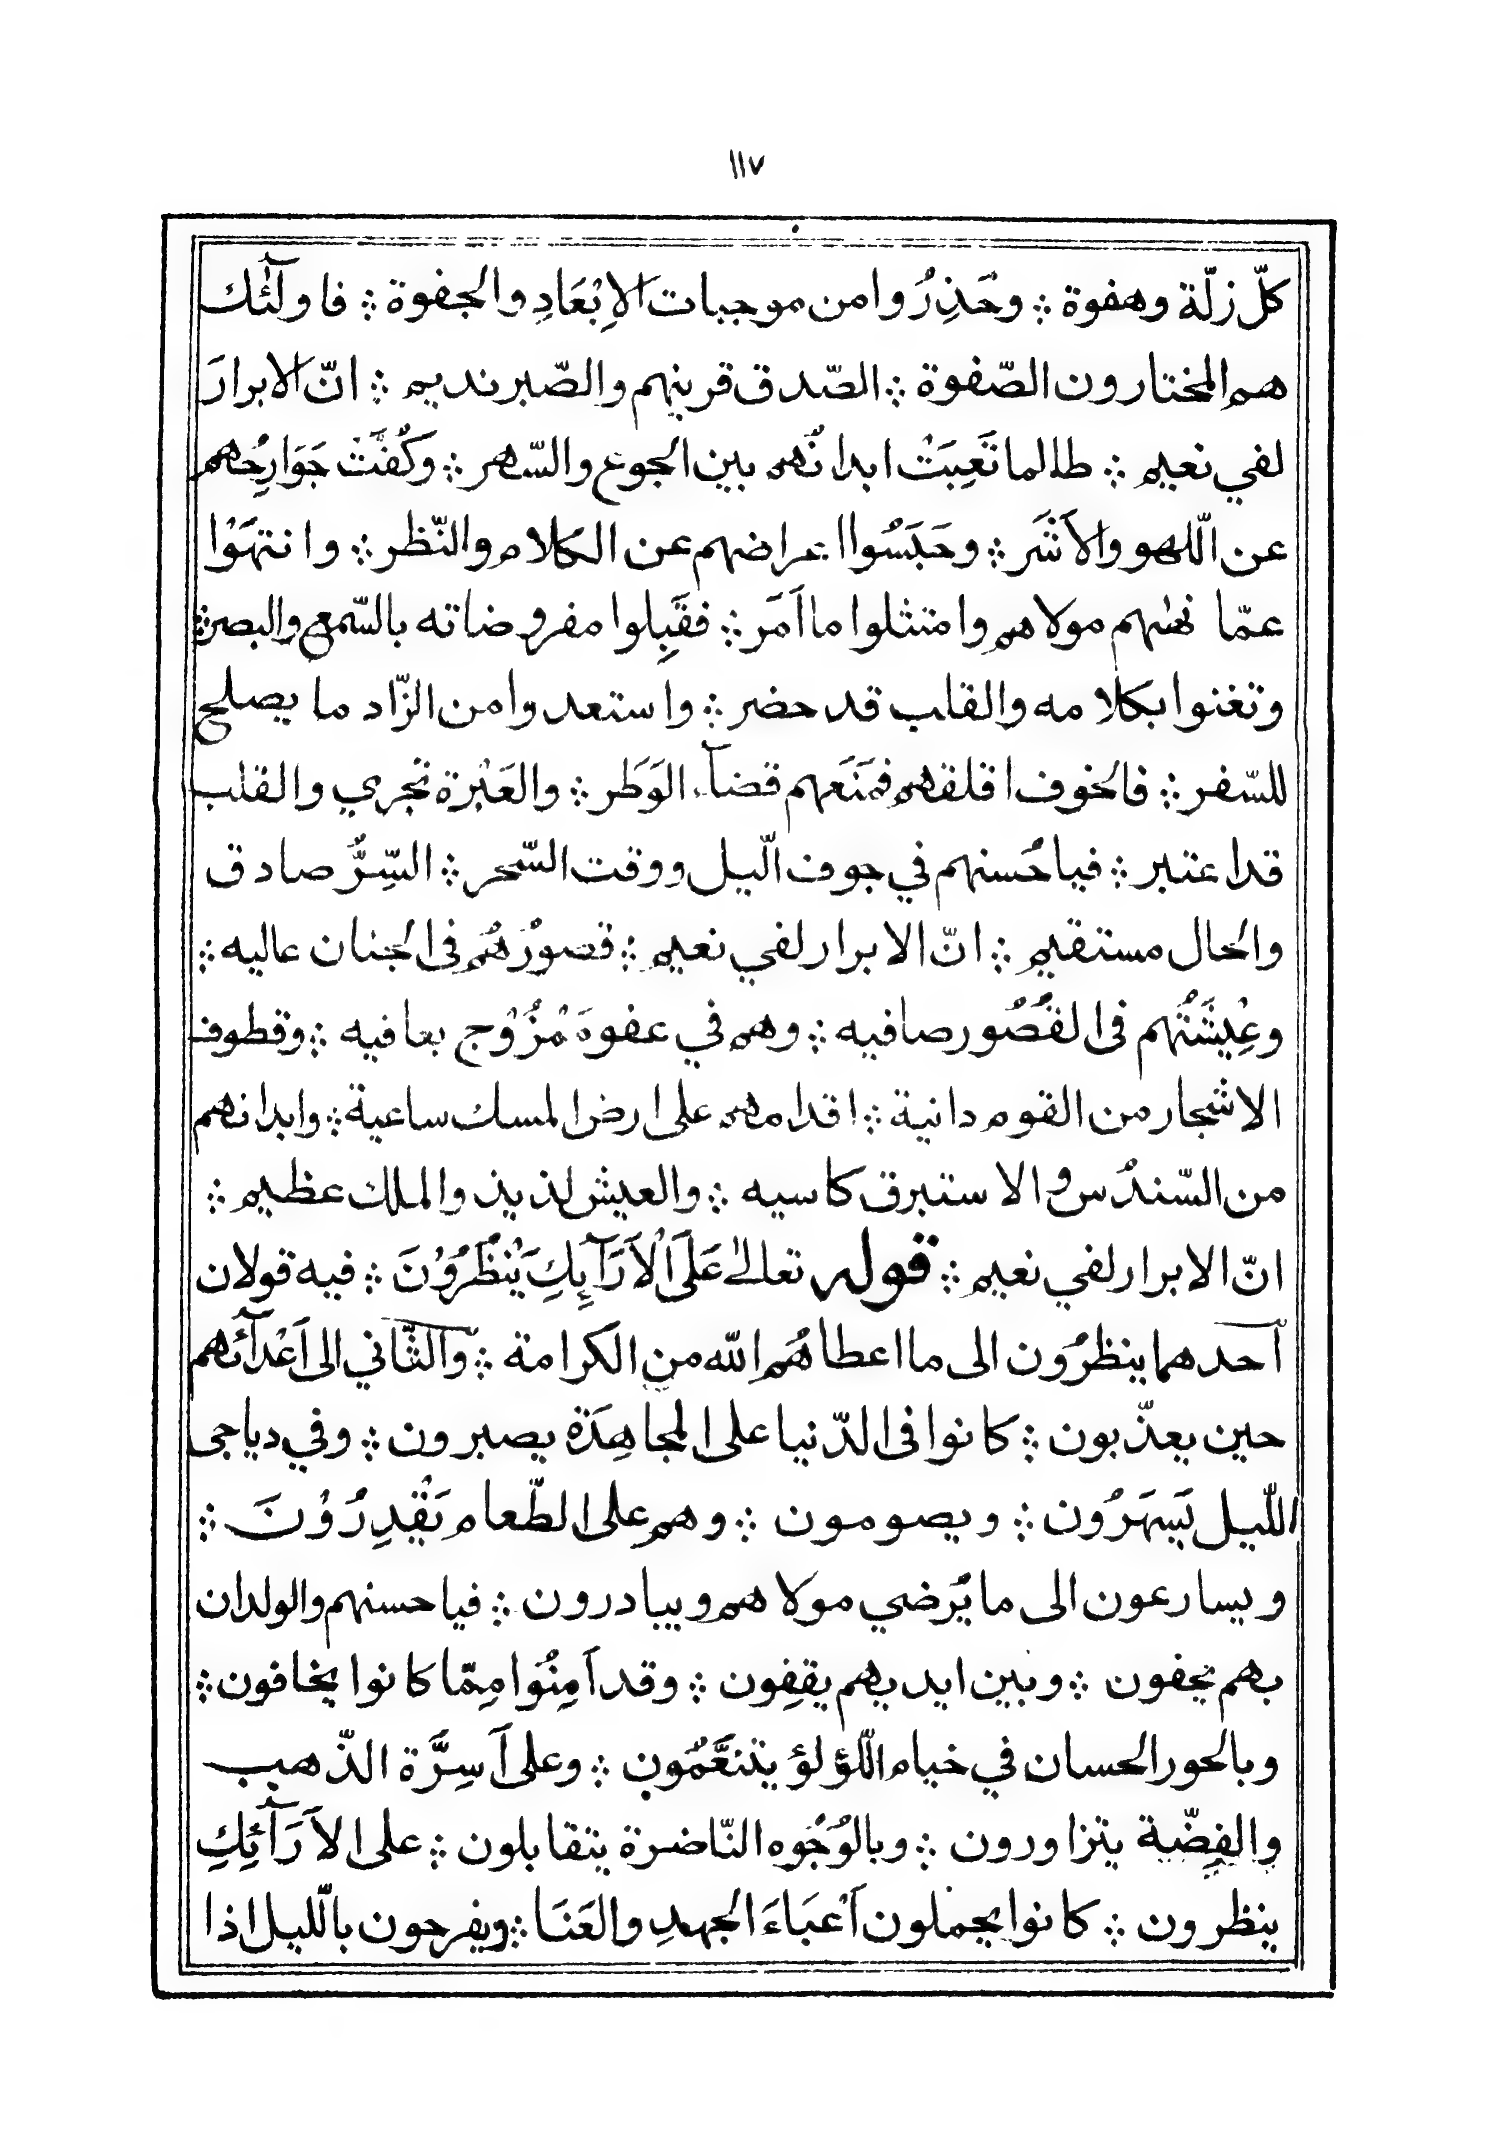 ١١٧
كلّ زلّة وهفوة ؞ وحُذِرُوا من موجبات الاِبْعَادِ والجفوة ؞ فاولٓئك
هم المختارون الصّفوة ؞ الصّدق قرينهم والصّبر نديم ؞ انّ الابرارَ
لفي نعيم ؞ طالما تَعِبَتْ ابدانُهم بين الجوع والسّهر ؞ وَكُفَّتْ جَوَارِحُهم
عن اللّهو والاَشَر ؞ وحَبَسُوا اعراضهم عن الكلام والنّظر ؞ وانتهَوْا
عمّا نهٰهم مولاهم وامتثلوا ما اَمَر ؞ فقَبِلوا مفروضاته بالسّمع والبصر؞
وتغنوا بكلامه والقلب قد حضر ؞ واستعدوا من الزّاد ما يصلح
للسّفر ؞ فالخوف اقلقهم فمَنَعَهم قضآء الوَطَر ؞ والعَبْرة تجري والقلب
قد اعتبر ؞ فيا حُسنهم في جوف الّيل ووقت السّحر ؞ السِّرُّ صادق
والحال مستقيم ؞ انّ الابرار لفي نعيم ؞ قصورُهُم فى الجنان عاليه ؞
وعِيْشَتُهم فى القُصُور صافيه ؞ وهم في عفوةَ مْزُوْج بعافيه ؞ وقطوف
الاشجار من القوم دانية ؞ اقدامهم على ارض المسك ساعية ؞ وابدانهم
من السّندُس والاستبرق كاسيه ؞ والعيش لذيذ والملك عظيم ؞
انّ الابرار لفي نعيم ؞ قوله تعالىٰ عَلَى الْاَرَآئِكِ يَنْظُرُوْنَ ؞ فيه قولان
اَحدهما ينظرُون الى ما اعطاهُم الله من الكرامة ؞ والثّاني الى اَعْدآئهم
حين يعذّبون ؞ كانوا فى الدّنيا على المجاهَدَة يصبرون ؞ وفي دياجى
اللّيل يَسهَرُون ؞ ويصومون ؞ وهم على الطّعام يَقْدِرُوْنَ ؞
ويسارعون الى ما يُرضي مولاهم ويبادرون ؞ فيا حسنهم والولدان
بهم يحفون ؞ وبين ايديهم يقفِون ؞ وقد اَمِنُوا مِمّا كانوا يخافون ؞
وبالحور الحسان في خيام اللّؤلؤ يتنعَّمُون ؞ وعلى اَسِرَّة الذّهب
والفِضّة يتزاورون ؞ وبالوُجُوه النّاضرة يتقابلون ؞ على الاَرَآئِكِ
ينظرون ؞ كانوا يحملون اَعْبَاءَ الجهدِ والعَنَا ؞ ويفرحون باللّيل اذا